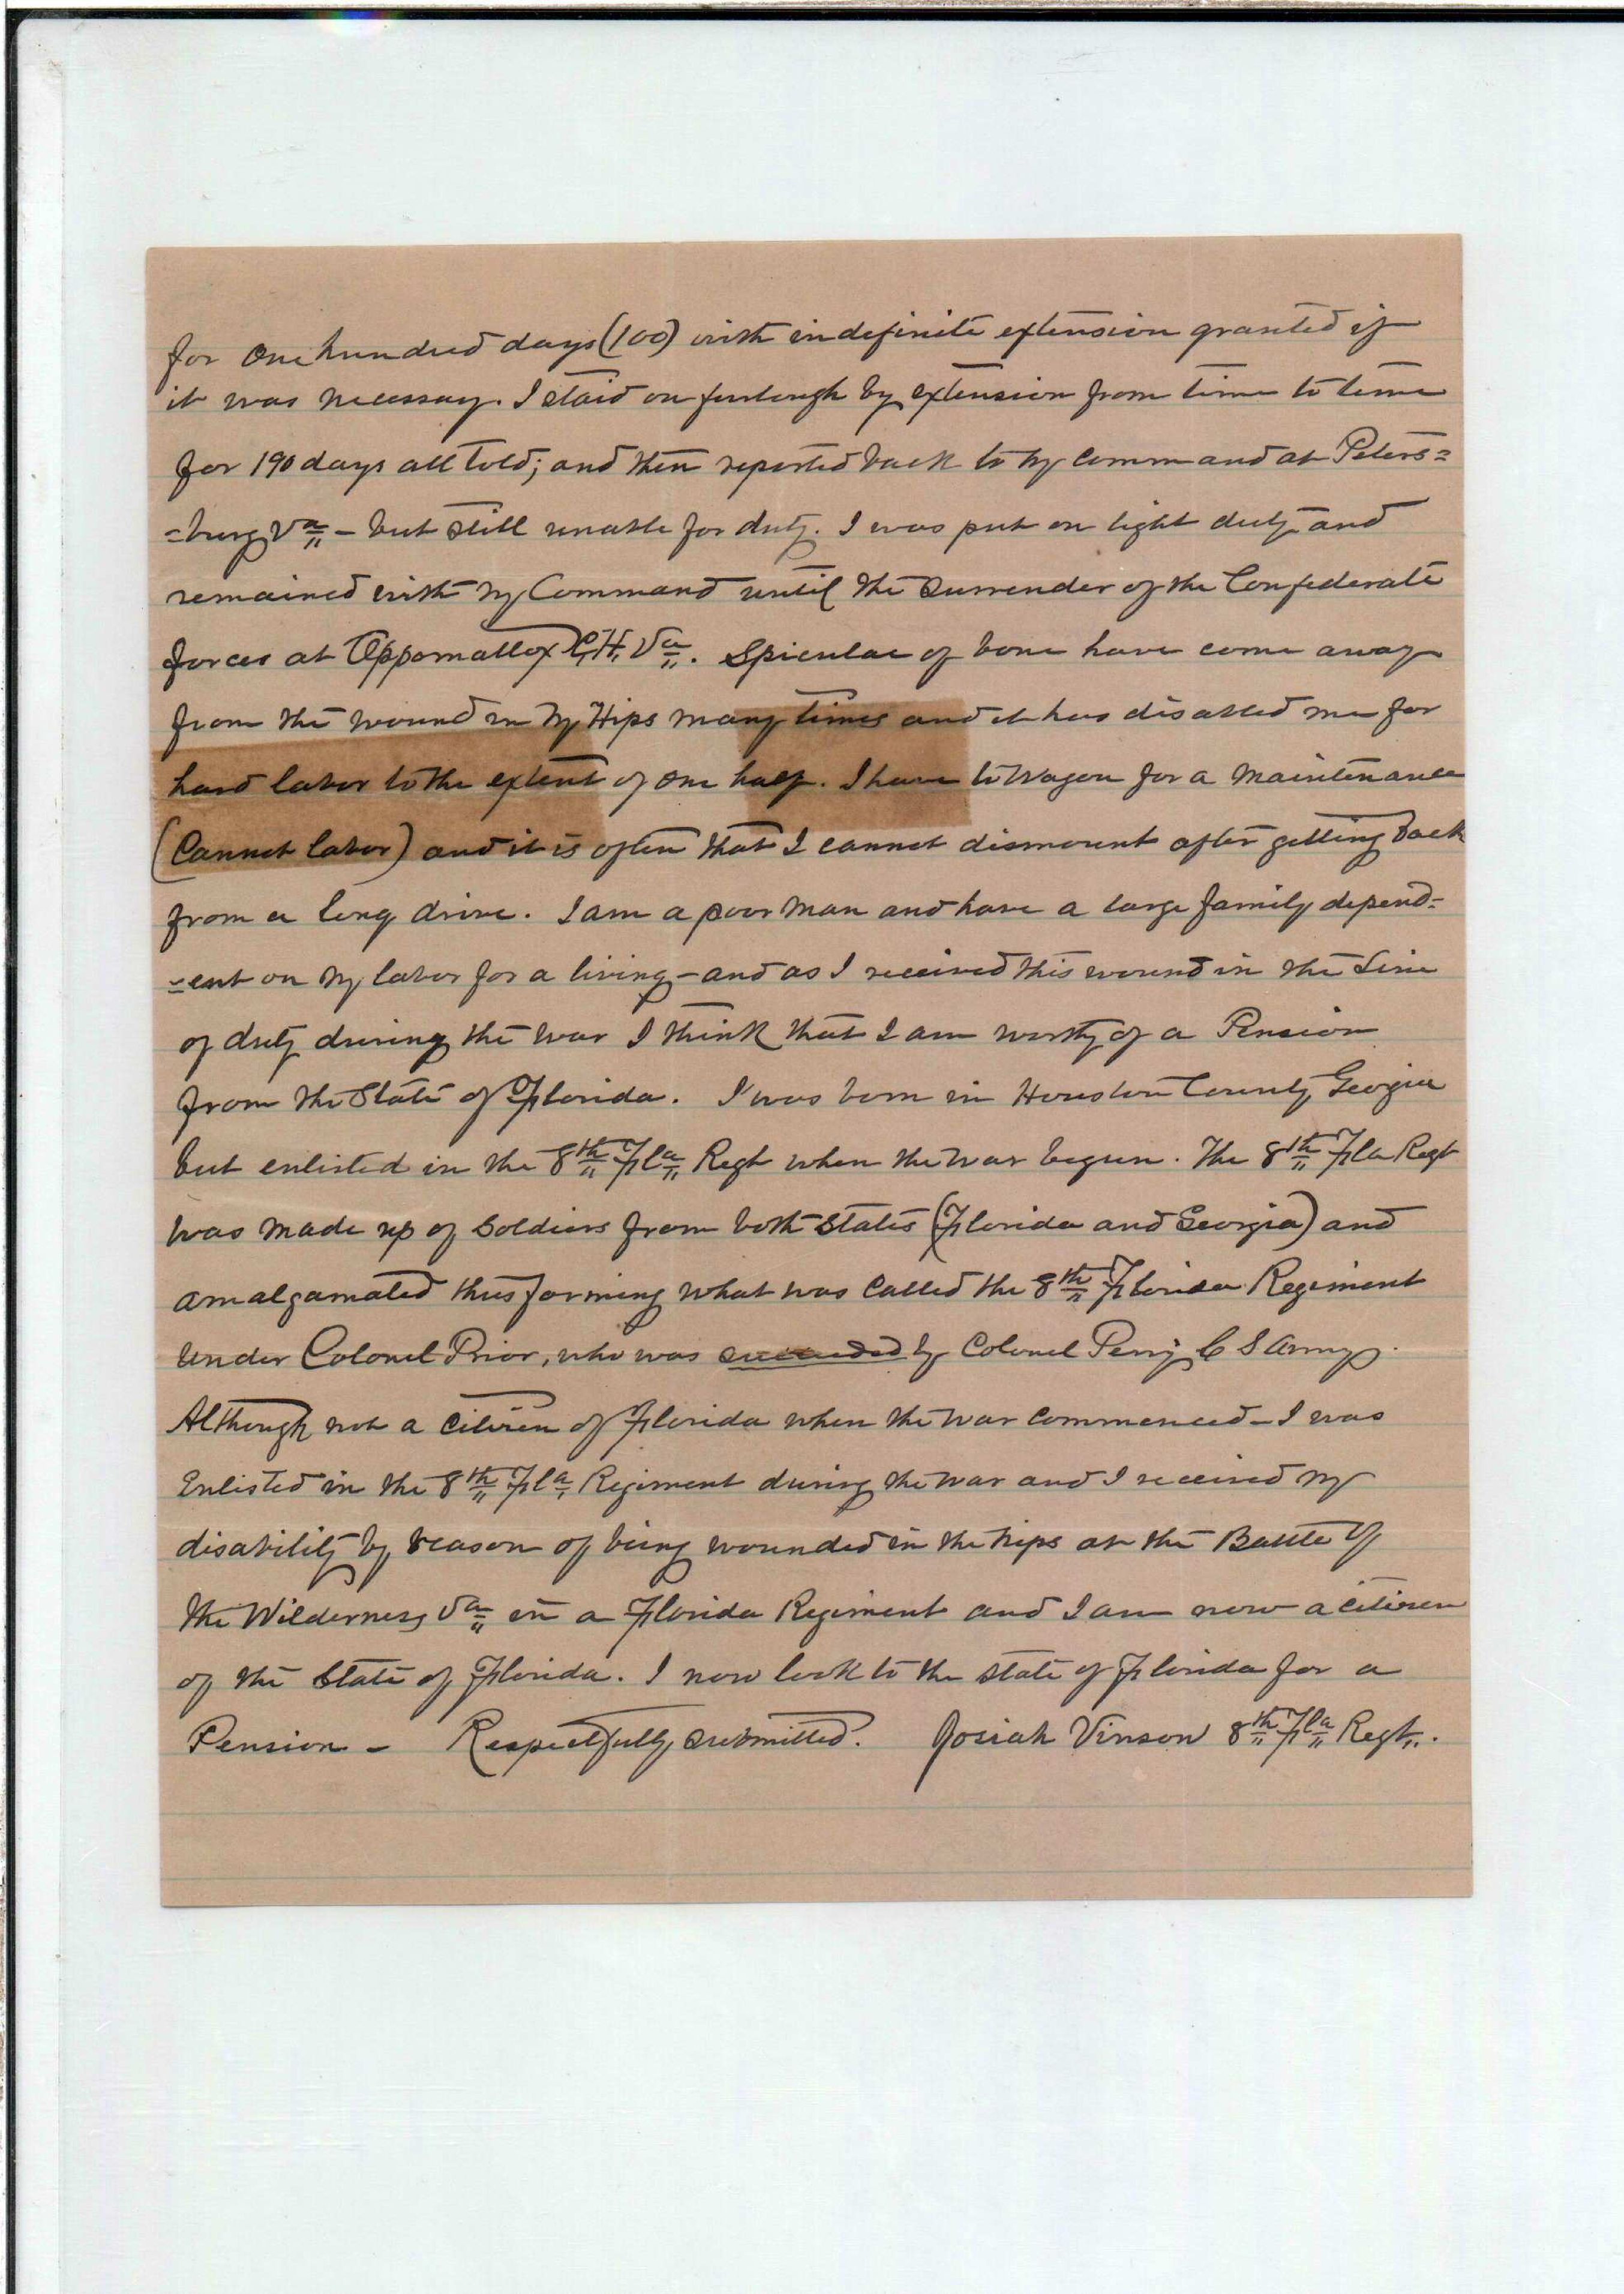 for One hundred days (100) with indefinite extension granted if
it was necessary. I staid on furlough by extension from time to time
for 190 days all told; and then reported back to my command at Peters=
=burg Va - but still unable for duty. I was put on light duty and
remained with my Command until the surrender of the Confederate
forces at Oppomattox C.H. Va. Spiculae of bone have come away
from the wound in my Hips many times and it has disabled me for
hard labor to the extent of one half. I have to Wagon for a maintenance
(Cannot labor) and it is often that I cannot dismount after getting back
from a long drive. I am a poor man and have a large family depend=
=ent on my labor for a living - and as I received this wound in the Line
of duty during the war I think that I am worthy of a Pension
from the State of Florida. I was born in Houston County Georgia
but enlisted in the 8th Fla Regt when the war begun. The 8th Fla Regt
was made up of soldiers from both States (Florida and Georgia) and
amalgamated thus forming what was called the 8th Florida Regiment
under Colonel Prior, who was succeeded by Colonel Perry C S Army.
Although not a citizen of Florida when the war commenced - I was
Enlisted in the 8th Fla Regiment during the war and I received my
disability by reason of being wounded in the hips at the Battle of
the Wilderness Va in a Florida Regiment and I am now a citizen
of the State of Florida. I now look to the State of Florida for a
Pension - Respectfully submitted. Josiah Vinson 8th Fla Regt.